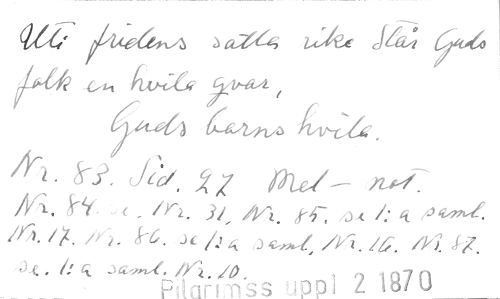 Uti fridens sälla rike Står Guds
folk en hvila qvar,
Guds barns hvila.
Nr. 83. Sid. 27 Mel – not.
Nr. 84. se. Nr. 31, Nr. 85. se 1:a saml.
Nr. 17. Nr. 86. se 1:a saml. Nr. 16. Nr. 87.
se. 1:a saml. Nr. 10.
Pilgrimss uppl 2 1870